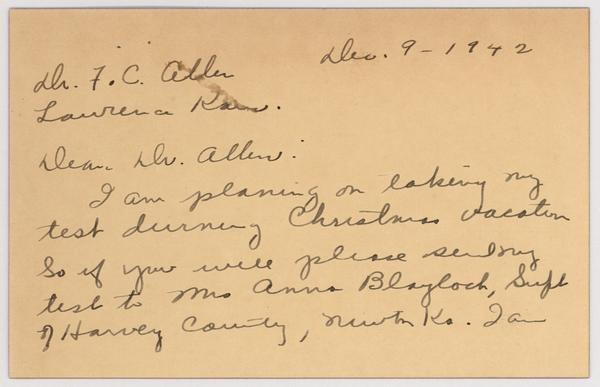 Dec. 9-1942
Dr. F. C. Allen
Lawrence Kans.
Dear Dr. Allen:
I am planing on takeing my
test durning Christmas vacation
So if you will please send my
test to Mrs Anna Blaylock, Supt
of Harvey County, Newton Ks. I am